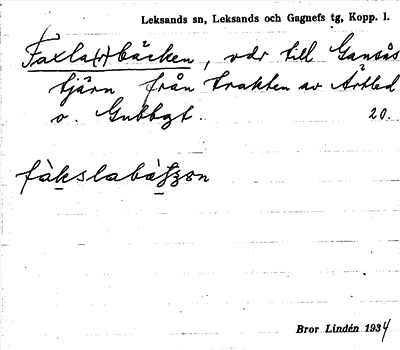 Leksands sn, Leksands och Gagnefs tg, Kopp. l.
Faxla(r)bäcken, vdr till Gansås
tjärn från trakten av Årtled
o. Gubbgt. 20.
fàkslabàʃʒən
Bror Lindén 1934